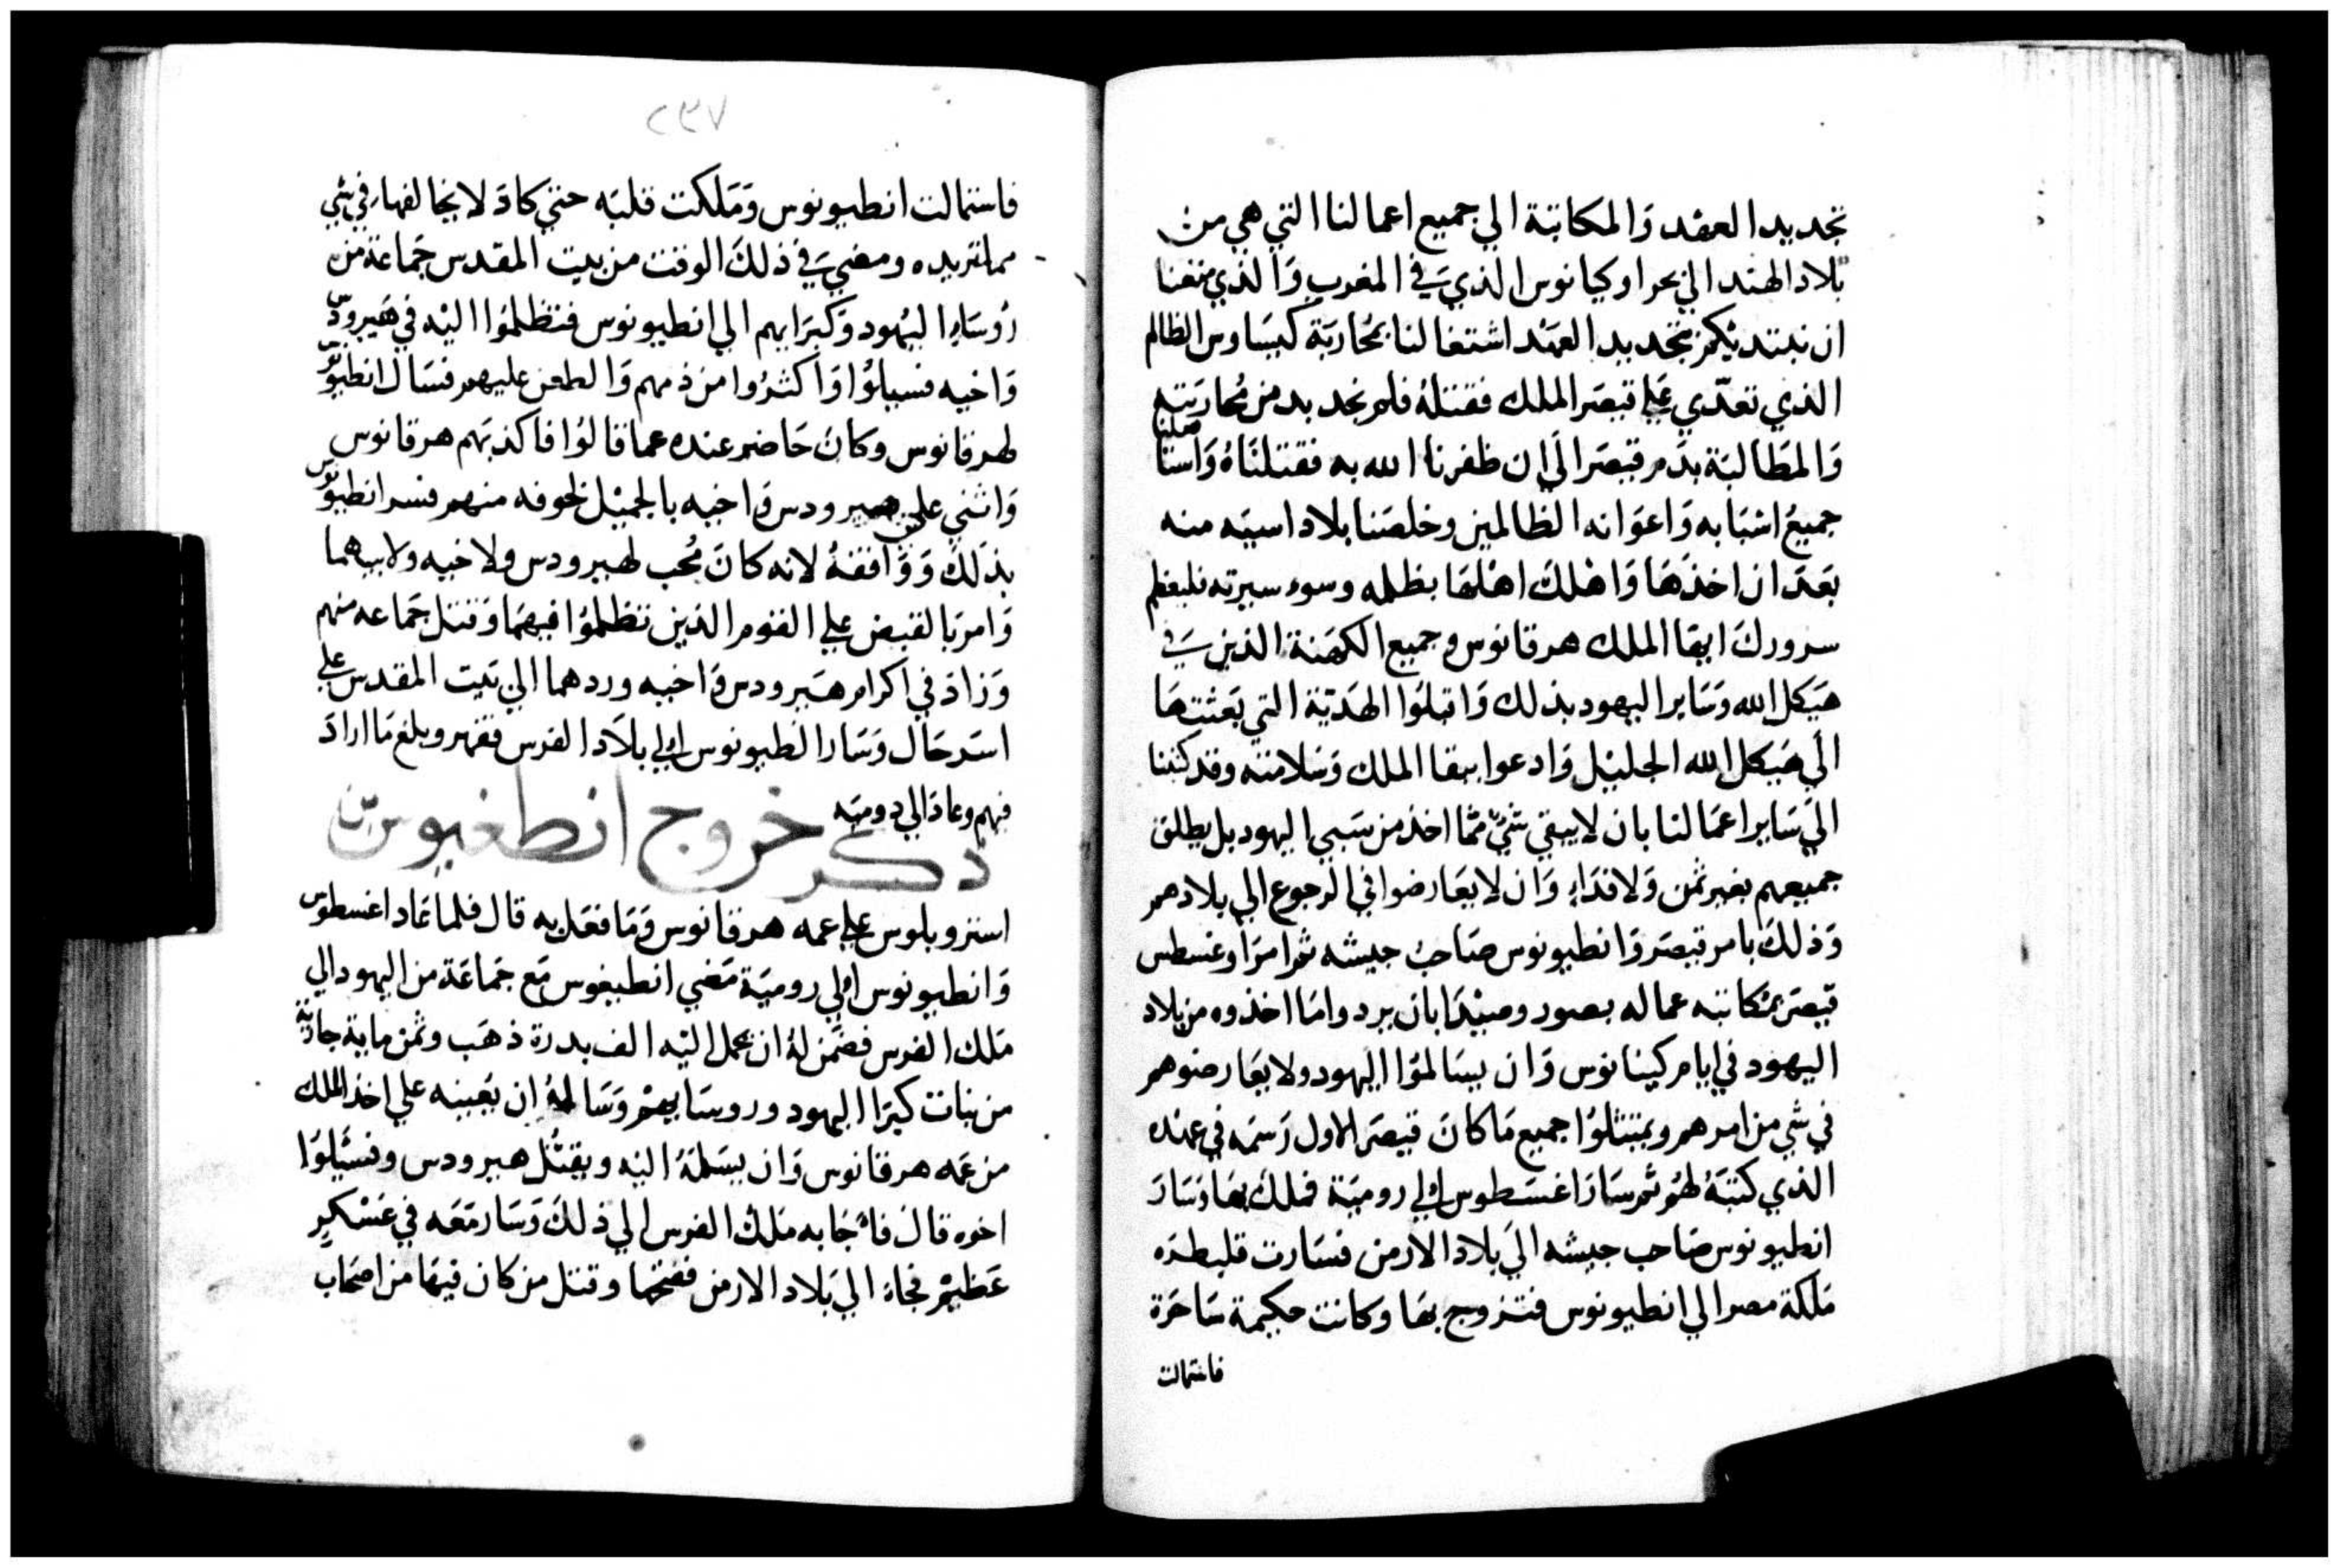 تجديد العقد وَالمكاتبة الي جميع اعمالنا التي هي من
بلاد الهند الي بحر اوكيانوس الذي في المغرب وَالذي منعنا
ان نبتديكم بتجديد العهد اشتغالنا بمحاربَة كيسَاوس الظالم
الذي تعدّي علي قيصَر الملك فقتلهُ فلم نجد بد من مُحاربَته
وَالمطَالبَة بدَم قيصَر الَي ان ظفرنا الله به فقتلنَاهُ وَاستاصلنا
جميعُ اشبَابه وَاعوَانه الظالمين وخلصَنا بلاد اسيَه منه
بَعدَ ان اخذَهَا وَاهْلك اهْلهَا بظلمه وسوء سيرته فليعظم
سرورك ايهَا الملك هرقانوس وجميع الكهَنة الذين في
هَيكل الله وسَاير اليهود بذلك وَاقبلوَا الهَديّة التي بَعثتهَا
الَي هَيكل الله الجليْل وَادعوا ببقا الملك وَسَلامته وقد كتبنا
الَي سَاير اعمَالنا بان لا يبقي شيْ ممّا اخذ من سَبي اليهود بل يطلق
جميعهم بغير ثمن وَلا فدَاءِ وَان لا يعَارضوا في الرجوع الي بلادهم
وَذلكَ بامر قيصَر وَانطيونوس صَاحبُ جيشه ثم امرَ اوغسطس
قيصَر بمكاتبَه عماله بصور وصيْدَا بان يردوا مَا اخذوه من بلاد
اليهود في ايام كينانوس وَان يسَالموُا اليهود ولا يعَارضوهم
في شي من امرهم ويمتثلوُا جميع مَا كانَ قيصَر الاول رَسمَه في عهده
الذي كتبَهُ لهُم ثم سَارَ اغسَطوس الي روميَة فملك بهَا وَسَارَ
انطيونوس صَاحب جيشه اليَ بلاد الارمن فسَارت قلبطرَه
مَلكة مصر الي انطيونوس فتزوج بهَا وكانت حكيمة سَاحرَة
فاستمالت
٢٣٧
فاستمالت انطيونوس وَمَلكت قلبَه حتي كادَ لا يخالفهَا في شي
مما تريده ومضي في ذلكَ الوقت من بيت المقدس جَماعة من
رُوسَاءِ اليهود وَكبرَايهم الي انطيونوس فتظلموُا اليْه في هَيرودس
وَاخيه فسبلوُا وَاكثرُوا من ذمهم وَالطعن عليهم فسَال انطيونوس
لهرقانوس وكانَ حَاضر عنده عما قالوُا فاكذبَهم هرقانوس
وَاثني علي هيرودس وَاخيه بالجميْل لخوفه منهم فسر انطيونوس
بذلكَ وَوَافقهُ لانه كانَ مُحب لهيرودس ولاخيه ولابيهما
وَامر بالقبض علي القوم الذين تظلموُا فيهمَا وَقتل جَماعه منهم
وَزادَ في اكرام هَيرودس وَاخيه وردهما الي بَيت المقدس علي
اسَر حَال وَسَار انطيونوس الي بلاَد الفرس فقهر وبلغ مَا ارادَ
فيهم وعادَ الي روميَه
ذكر خروج انطغيوس بن
استروبلوس علي عمه هرقانوس وَمَا فعَل به قال فلما عَاد اغسطوس
وَانطيونوس الي روميَة مَضي انطيغوس مَع جَماعَة من اليهود الي
مَلك الفرس فضَمن لهُ ان يحمل اليْه الف بدرة ذهَب وثمن ماية جاريَه
من بنات كبرَا اليهود وروسَايهمْ وَسَالهُ ان يُعينه علي اخذ الملك
من عَمه هرقانوس وَان يسَلمَهُ اليْه ويقتُل هيرودس وفسَيلوَا
اخوه قال فاَجَابه مَلكْ الفرس الي ذلكَ وَسَار مَعَه في عَسْكرٍ
عَظيمْ فجاءَ الي بَلاد الارمن ففتحَهَا وقتل من كان فيهَا من اصحَاب